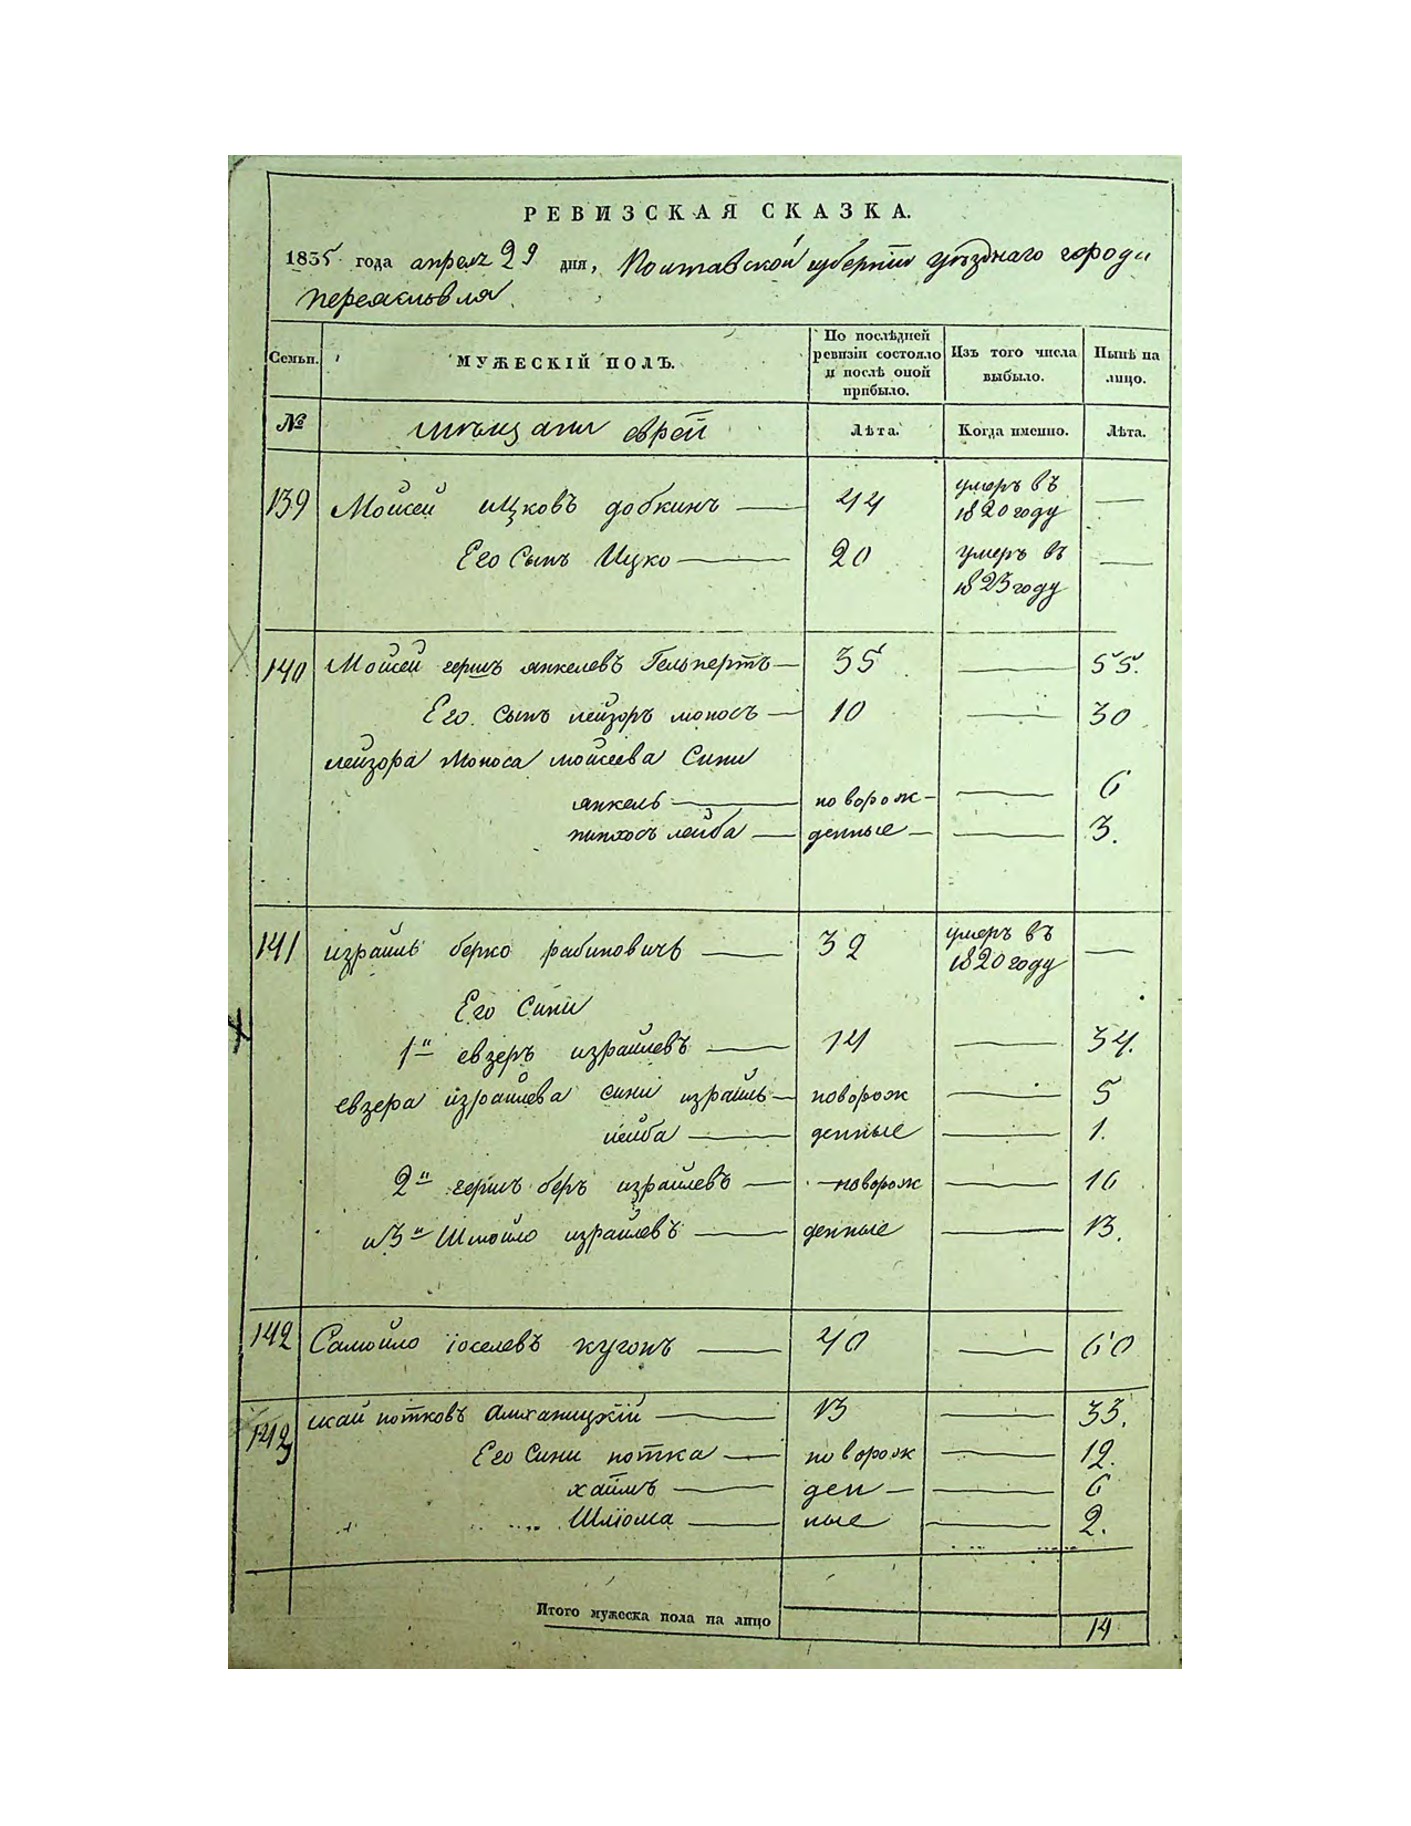 РЕВИЗСКАЯ СКАЗКА.
1835 года апреля 29 дня, Полтавской губернiи уѣзднаго города
Переясловля
Семьи. МУЖЕСКIЙ ПОЛЪ. По послѣдней ревизiи состояло и послѣ оной прибыло. Изъ того числа выбыло. Нынѣ на лицо.
№ мѣщани еврей Лѣта. Когда именно. Лѣта.
139 Мойсей ицковъ добкинъ — 44 умеръ въ 1820 году —
Его сынъ Ицко — 20 умеръ въ 1823 году —
140 Мойсей гершъ янкелевъ Гельпертъ — 35 — 55.
Его сынъ лейзоръ моносъ — 10 — 30
лейзора Моноса мойсеева Сини
янкель — новорож — — 6
пинхосъ лейба — денные — — 3.
141 израиль берко рабиновичъ — 32 умеръ въ 1820 году —
Его Сини
1й евзеръ израилевъ — 14 — 34.
евзера израилева сини израиль — новорож — 5
лейба — денные — 1.
2й гершъ беръ израилевъ — новорож — 16
и 3й Шмойло израилевъ — денные — 13.
142 Самойло iоселевъ кугонъ — 40 — 60
143 нотковъ — 13 — 33.
Его Сини нотка — новорож — 12.
хаимъ — ден — — 6
Шлiома — ные — 2.
Итого мужеска пола на лицо 14